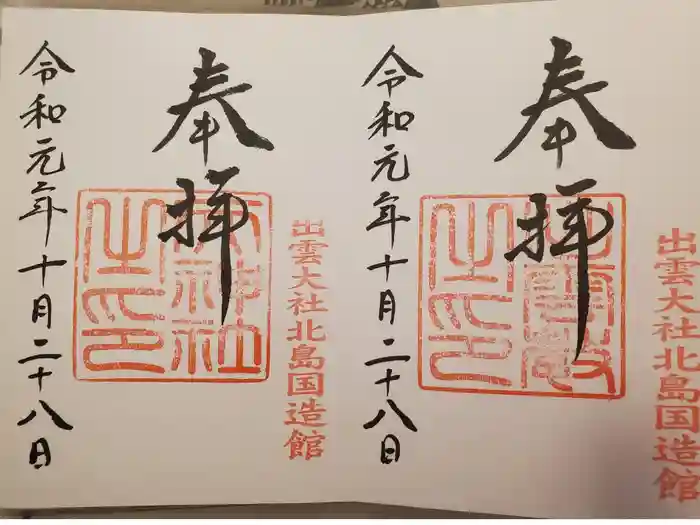 出雲大社北島国造館
奉拝
令和元年十月二十八日
出雲大社北島国造館
奉拝
天神社
之印
令和元年十月二十八日